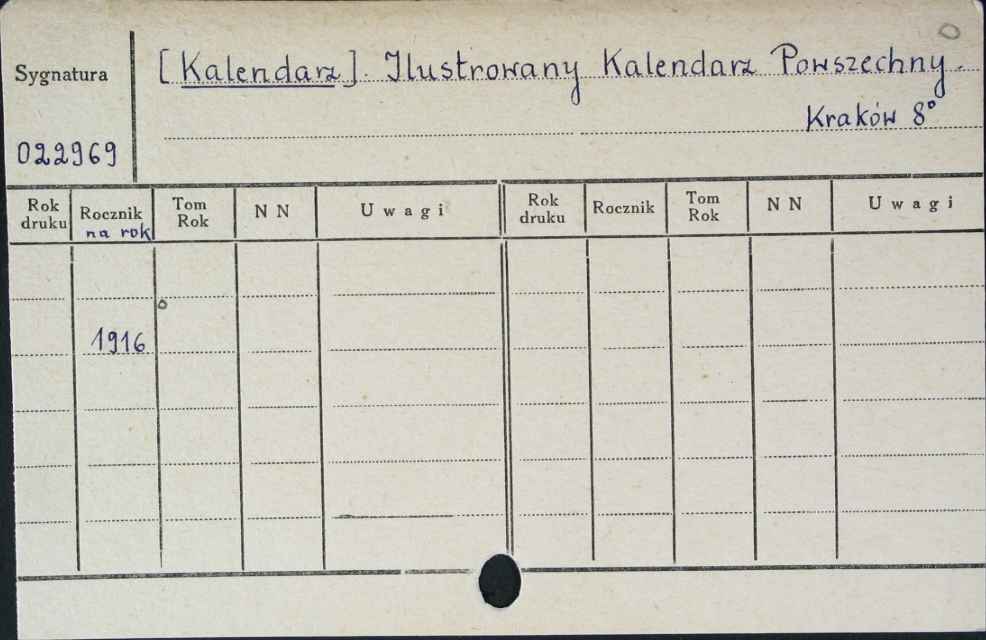 Sygnatura
[Kalendarz]. Ilustrowany Kalendarz Powszechny.
Kraków 8°
022969
Rok druku Rocznik na rok Tom Rok N N Uwagi Rok druku Rocznik Tom Rok N N Uwagi
1916